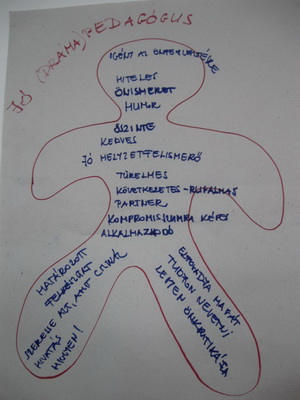 JÓ (DRÁMA)PEDAGÓGUS
IGÉNY AZ ÖNFEJLESZTÉSRE
HITELES
ÖNISMERET
HUMOR
ŐSZINTE
KEDVES
JÓ HELYZETFELISMERŐ
TÜRELMES
KÖVETKEZETES - RUGALMAS
PARTNER
KOMPROMISSZUMRA KÉPES
ALKALMAZKODÓ
HATÁROZOTT
FELKÉSZÜLT
SZERESSE AZT, AMIT CSINÁL
HIVATÁS
HIGGYEN!
ELFOGADJA MAGÁT
TUDJON NEVETNI
LEGYEN ÖNKRITIKÁJA